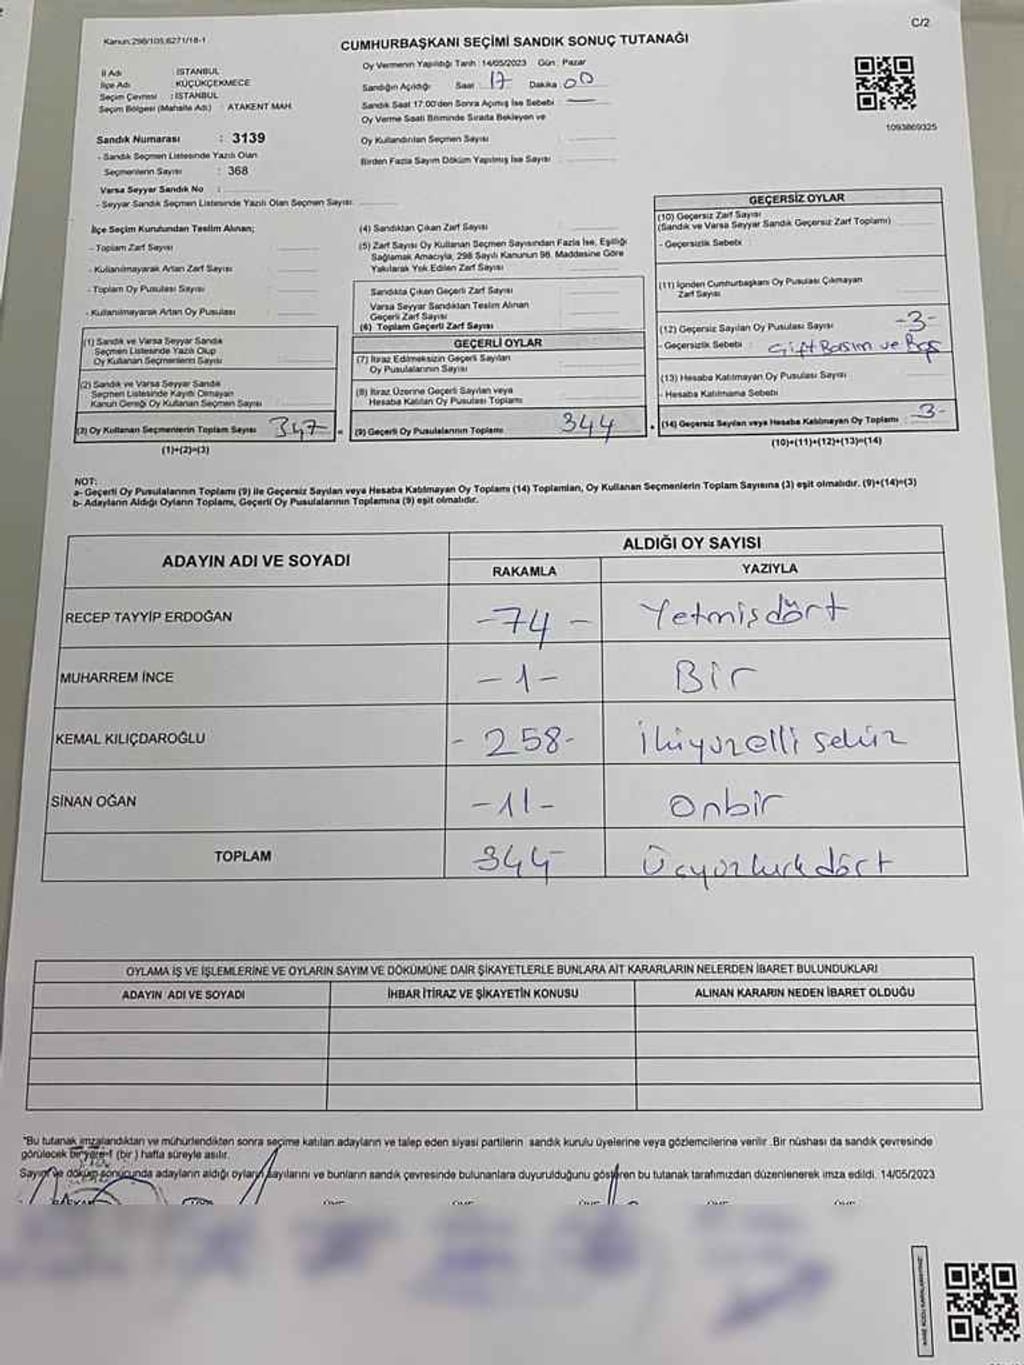 C/2
Kanun:298/105,6271/18-1
CUMHURBAŞKANI SEÇİMİ SANDIK SONUÇ TUTANAĞI
İl Adı : İSTANBUL
İlçe Adı : KÜÇÜKÇEKMECE
Seçim Çevresi : İSTANBUL
Seçim Bölgesi (Mahalle Adı) : ATAKENT MAH.
Sandık Numarası : 3139
- Sandık Seçmen Listesinde Yazılı Olan
Seçmenlerin Sayısı : 368
Varsa Seyyar Sandık No :
- Seyyar Sandık Seçmen Listesinde Yazılı Olan Seçmen Sayısı
Oy Vermenin Yapıldığı Tarih :14/05/2023 Gün : Pazar
Sandığın Açıldığı Saat 17 Dakika 00
Sandık Saat 17:00'den Sonra Açımış İse Sebebi —
Oy Verme Saati Bitiminde Sırada Bekleyen ve
Oy Kullandırılan Seçmen Sayısı
Birden Fazla Sayım Döküm Yapılmış İse Sayısı
1093869325
İlçe Seçim Kurulundan Teslim Alınan;
- Toplam Zarf Sayısı
- Kullanılmayarak Artan Zarf Sayısı
- Toplam Oy Pusulası Sayısı
- Kullanılmayarak Artan Oy Pusulası
(1) Sandık ve Varsa Seyyar Sandık
Seçmen Listesinde Yazılı Olup
Oy Kullanan Seçmenlerin Sayısı
(2) Sandık ve Varsa Seyyar Sandık
Seçmen Listesinde Kayıtlı Olmayan
Kanun Gereği Oy Kullanan Seçmen Sayısı
(3) Oy Kullanan Seçmenlerin Toplam Sayısı 347
(1)+(2)=(3)
(4) Sandıktan Çıkan Zarf Sayısı
(5) Zarf Sayısı Oy Kullanan Seçmen Sayısından Fazla İse, Eşitliği
Sağlamak Amacıyla, 298 Sayılı Kanunun 98. Maddesine Göre
Yakılarak Yok Edilen Zarf Sayısı
Sandıkta Çıkan Geçerli Zarf Sayısı
Varsa Seyyar Sandıktan Teslim Alınan
Geçerli Zarf Sayısı
(6) Toplam Geçerli Zarf Sayısı
GEÇERLİ OYLAR
(7) İtiraz Edilmeksizin Geçerli Sayılan
Oy Pusulalarının Sayısı
(8) İtiraz Üzerine Geçerli Sayılan veya
Hesaba Katılan Oy Pusulası Toplamı
= (9) Geçerli Oy Pusulalarının Toplamı 344
GEÇERSİZ OYLAR
(10) Geçersiz Zarf Sayısı
(Sandık ve Varsa Seyyar Sandık Geçersiz Zarf Toplamı)
- Geçersizlik Sebebi
(11) İçinden Cumhurbaşkanı Oy Pusulası Çıkmayan
Zarf Sayısı
(12) Geçersiz Sayılan Oy Pusulası Sayısı -3-
- Geçersizlik Sebebi : Çift Basım ve Boş
(13) Hesaba Katılmayan Oy Pusulası Sayısı
- Hesaba Katılmama Sebebi
+ (14) Geçersiz Sayılan veya Hesaba Katılmayan Oy Toplamı -3-
(10)+(11)+(12)+(13)=(14)
NOT:
a- Geçerli Oy Pusulalarının Toplamı (9) ile Geçersiz Sayılan veya Hesaba Katılmayan Oy Toplamı (14) Toplamları, Oy Kullanan Seçmenlerin Toplam Sayısına (3) eşit olmalıdır. (9)+(14)=(3)
b- Adayların Aldığı Oyların Toplamı, Geçerli Oy Pusulalarının Toplamına (9) eşit olmalıdır.
ADAYIN ADI VE SOYADI
ALDIĞI OY SAYISI
RAKAMLA YAZIYLA
RECEP TAYYİP ERDOĞAN -74- Yetmişdört
MUHARREM İNCE -1- Bir
KEMAL KILIÇDAROĞLU -258- İkiyüzelli sekiz
SİNAN OĞAN -11- Onbir
TOPLAM 344 Üçyüzkırkdört
OYLAMA İŞ VE İŞLEMLERİNE VE OYLARIN SAYIM VE DÖKÜMÜNE DAİR ŞİKAYETLERLE BUNLARA AİT KARARLARIN NELERDEN İBARET BULUNDUKLARI
ADAYIN ADI VE SOYADI İHBAR İTİRAZ VE ŞİKAYETİN KONUSU ALINAN KARARIN NEDEN İBARET OLDUĞU
*Bu tutanak imzalandıktan ve mühürlendikten sonra seçime katılan adayların ve talep eden siyasi partilerin sandık kurulu üyelerine veya gözlemcilerine verilir. Bir nüshası da sandık çevresinde
görülecek bir yere 1 (bir) hafta süreyle asılır.
Sayım ve döküm sonucunda adayların aldığı oyların sayılarını ve bunların sandık çevresinde bulunanlara duyurulduğunu gösteren bu tutanak tarafımızdan düzenlenerek imza edildi. 14/05/2023